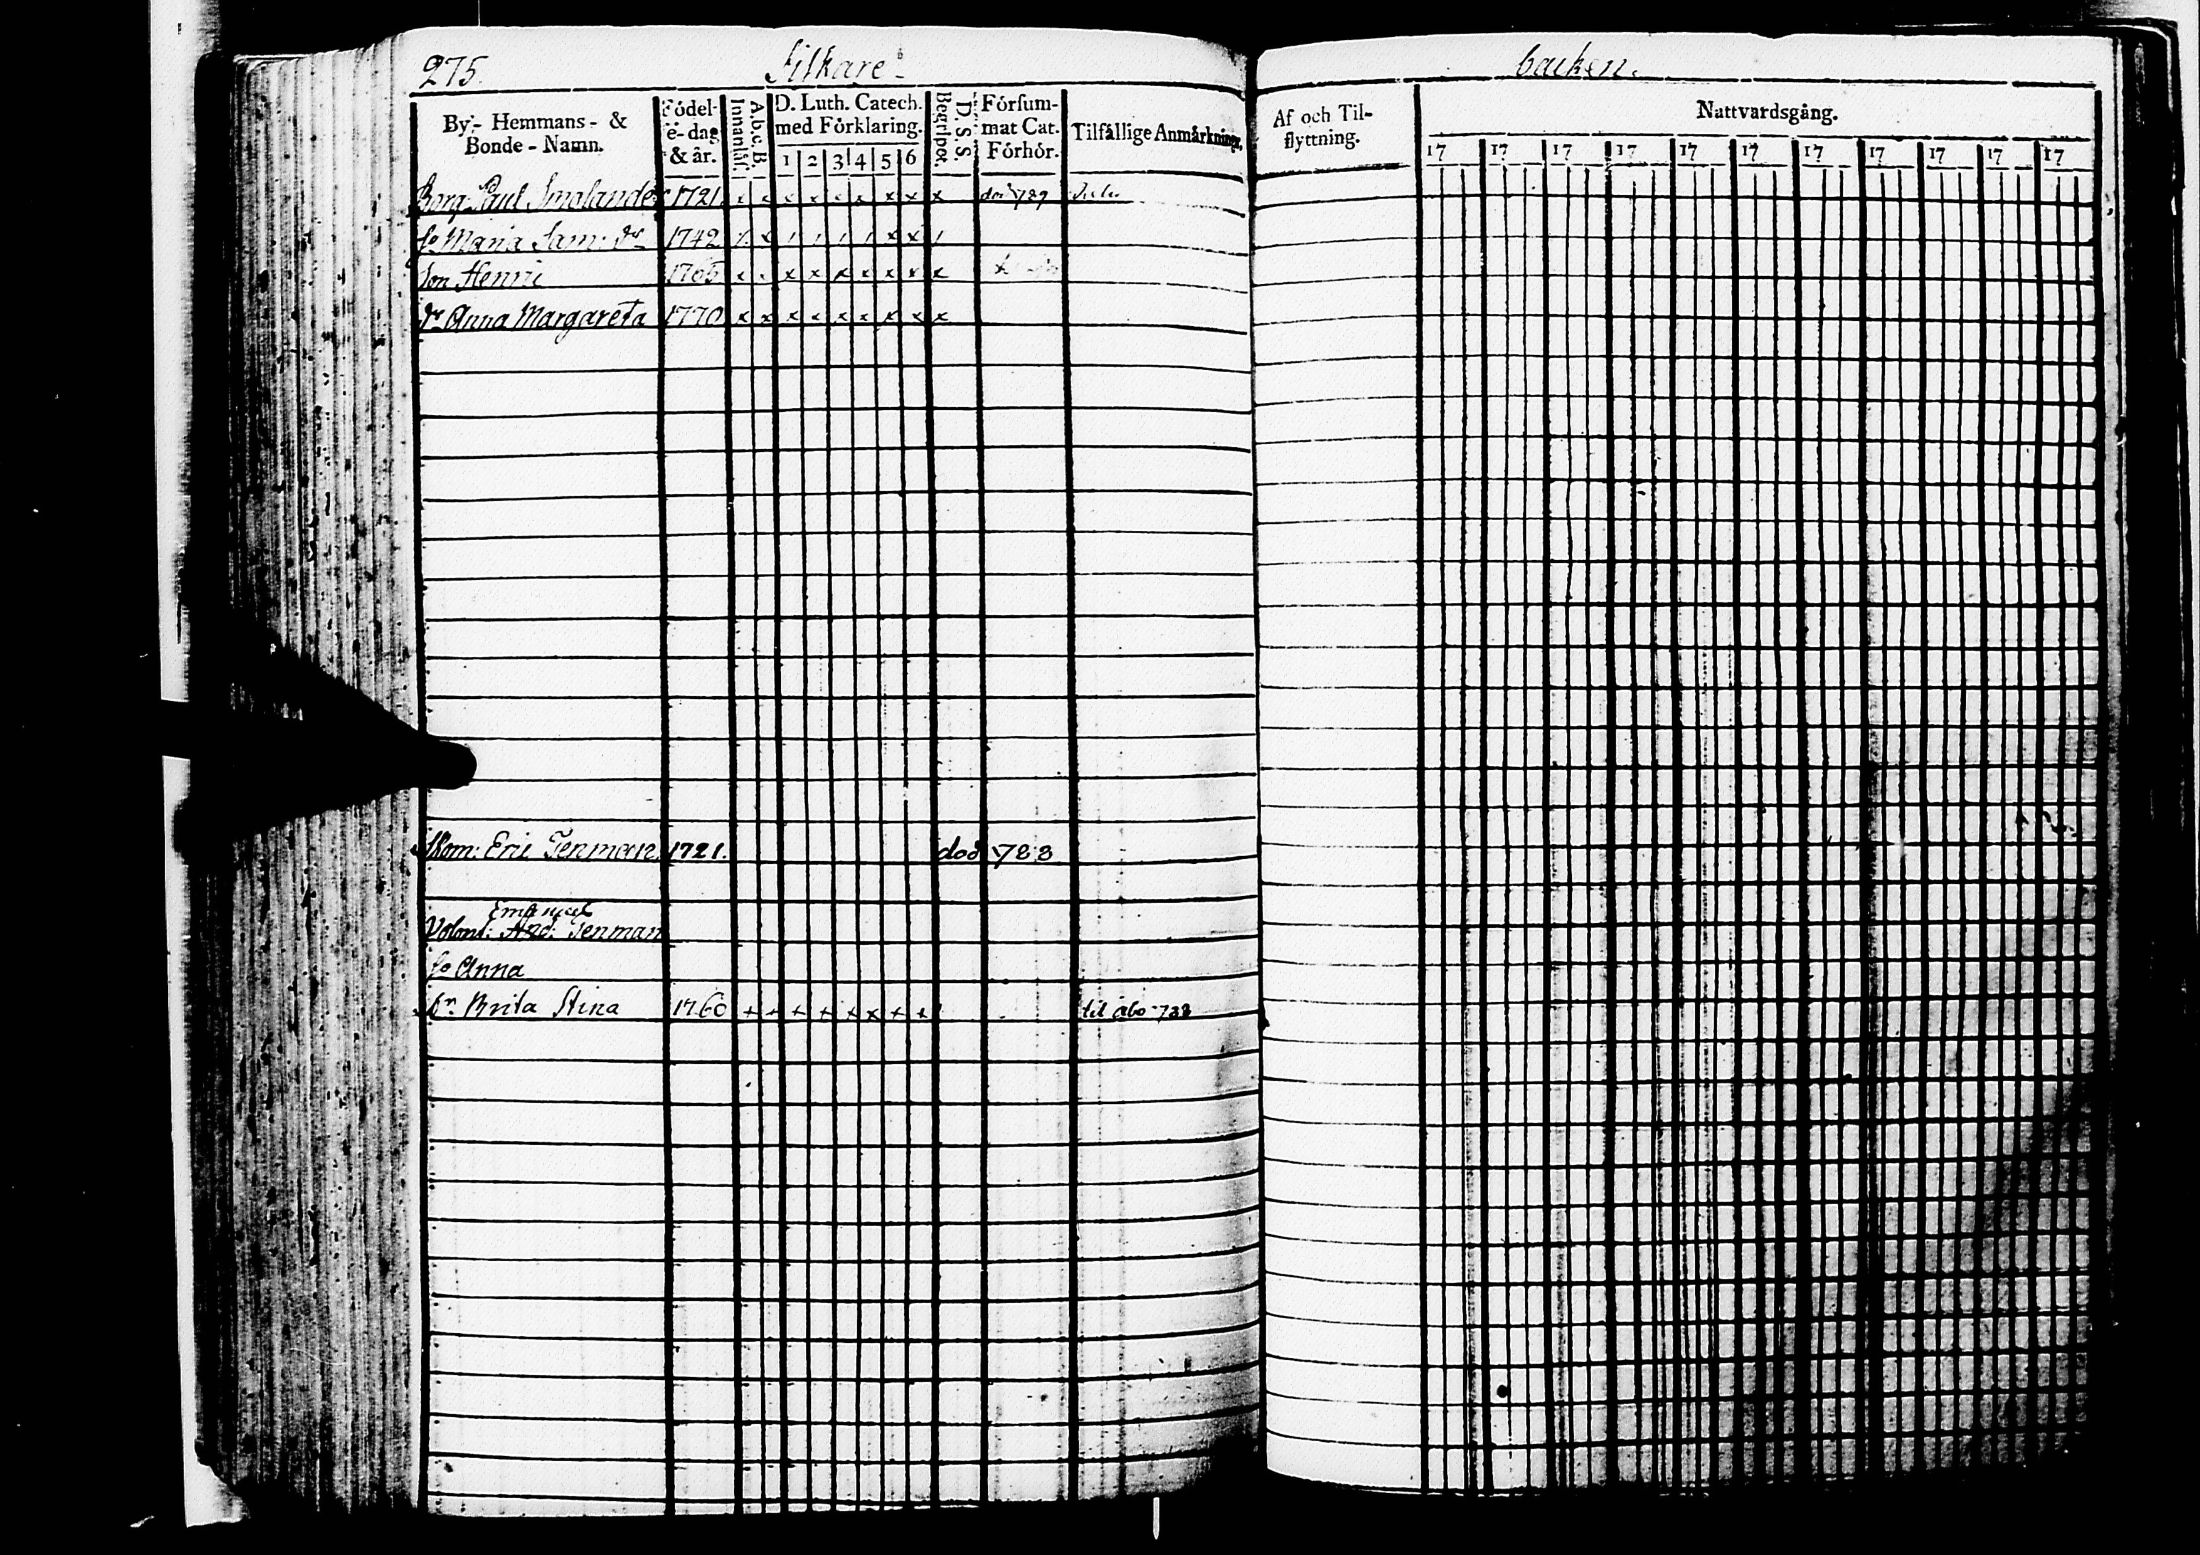 275. Filkare- backen.
By- Hemmans- & Bonde-Namn.
Födel-se-dag & år.
Innanläs. A.b.c.B.
D. Luth. Catech. med Förklaring.
1 2 3 4 5 6
Begripet. D.S.S.
Försum-mat Cat. Förhör.
Tilfällige Anmärkningr.
Af och Til-flyttning.
Nattvardsgång.
17 17 17 17 17 17 17 17 17 17 17
Borg: Paul Smolander 1721. x x x x x x x x x död 789
h:o Maria Sam: dr 1742 x x
Son Henric 1765 x x x x x x x x x
dr Anna Margareta 1770 x x x x x x x x x
Eric Tenman 1721. död 788
Emanuel
Volont: And: Tenman
h:o Anna
dr. Brita Stina 1760 + + + + + x + +
til åbo 788